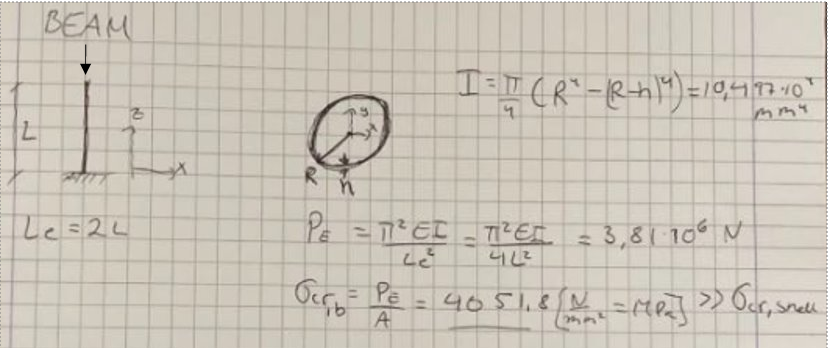 BEAM
I = π/4 (R⁴ - (R-h)⁴) = 10,497·10⁷ mm⁴
L
z
x
y
x
R
h
Lc = 2L
P_E = π²EI/Lc² = π²EI/4L² = 3,81·10⁶ N
σcr,b = P_E/A = 4051,8 [N/mm² = MPa] >> σcr,shell